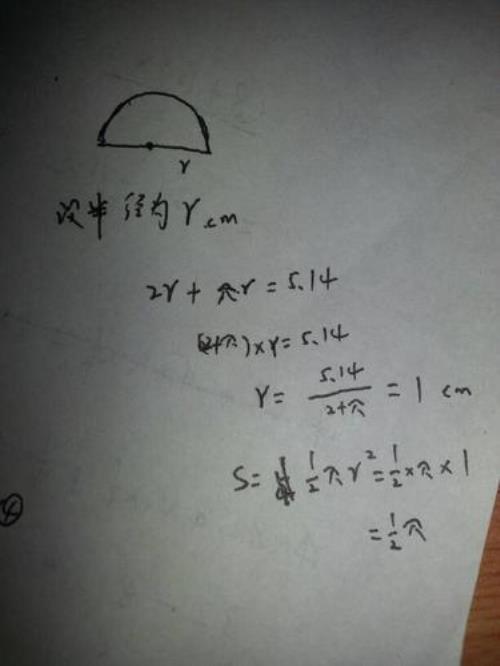 r
设半径为r cm
2r+πr=5.14
(2+π)×r=5.14
r=5.14/2+π=1 cm
S=1/2πr²=1/2×π×1
=1/2π
④